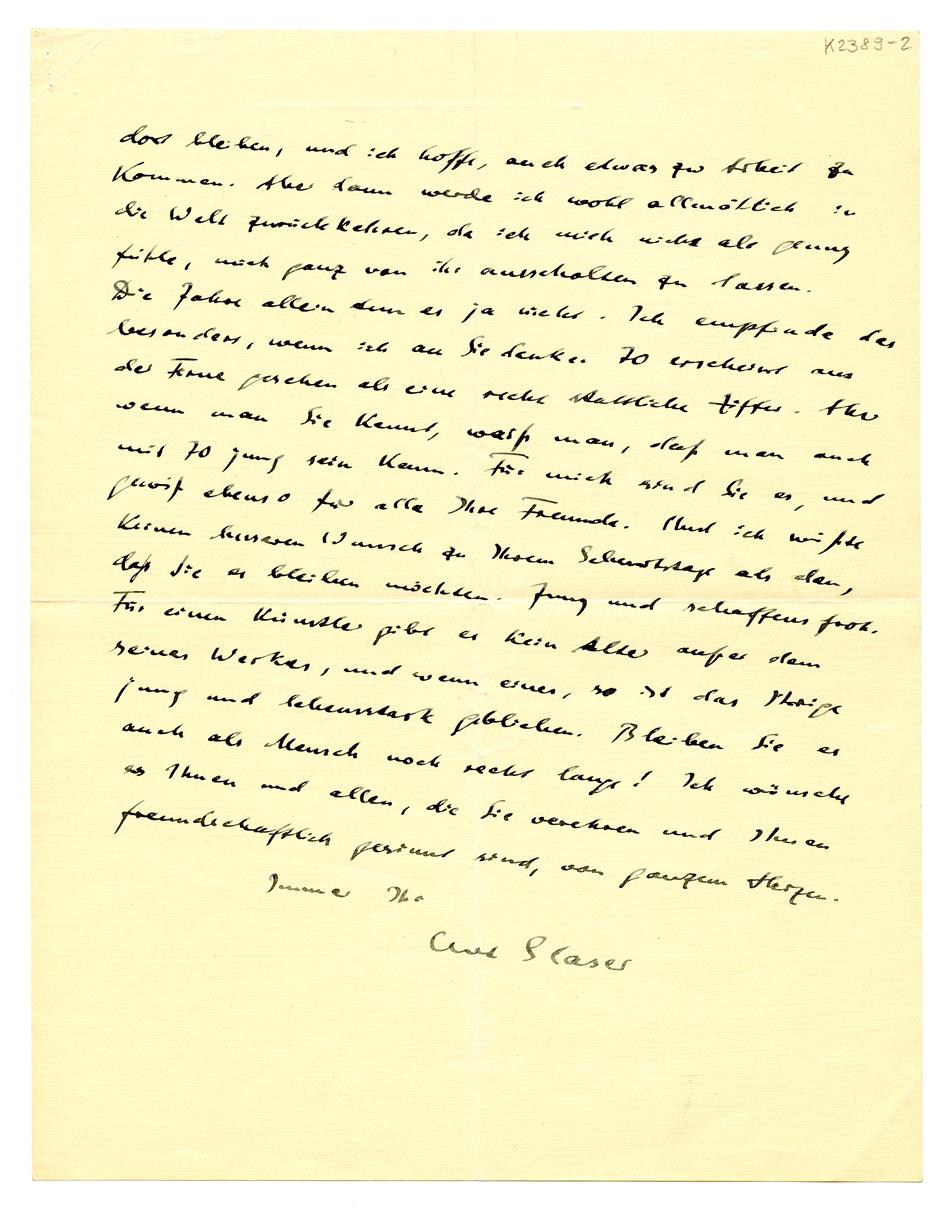 K2389-2
dort bleiben, und ich hoffe, auch etwas zur Arbeit zu
kommen. Aber dann werde ich wohl allmählich in
die Welt zurückkehren, da ich mich nicht alt genug
fühle, mich ganz von ihr ausschalten zu lassen.
Die Jahre allein tun es ja nicht. Ich empfinde das
besonders, wenn ich an Sie denke. 70 erscheint aus
der Ferne gesehen als eine recht stattliche Ziffer. Aber
wenn man Sie kennt, weiß man, daß man auch
mit 70 jung sein kann. Für mich sind Sie es, und
gewiß ebenso für alle Ihre Freunde. Und ich wüßte
keinen besseren Wunsch zu Ihrem Geburtstage als den,
daß Sie es bleiben möchten. Jung und schaffensfroh.
Für einen Künstler gibt es kein Alter außer dem
seines Werkes, und wenn eines, so ist das Ihrige
jung und lebensstark geblieben. Bleiben Sie es
auch als Mensch noch recht lange! Ich wünsche
es Ihnen und allen, die Sie verehren und Ihnen
freundschaftlich gesinnt sind, von ganzem Herzen.
Immer Ihr
Curt Glaser